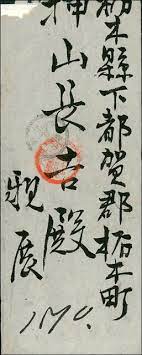 栃木縣下都賀郡栃木町
山長吉殿
親展